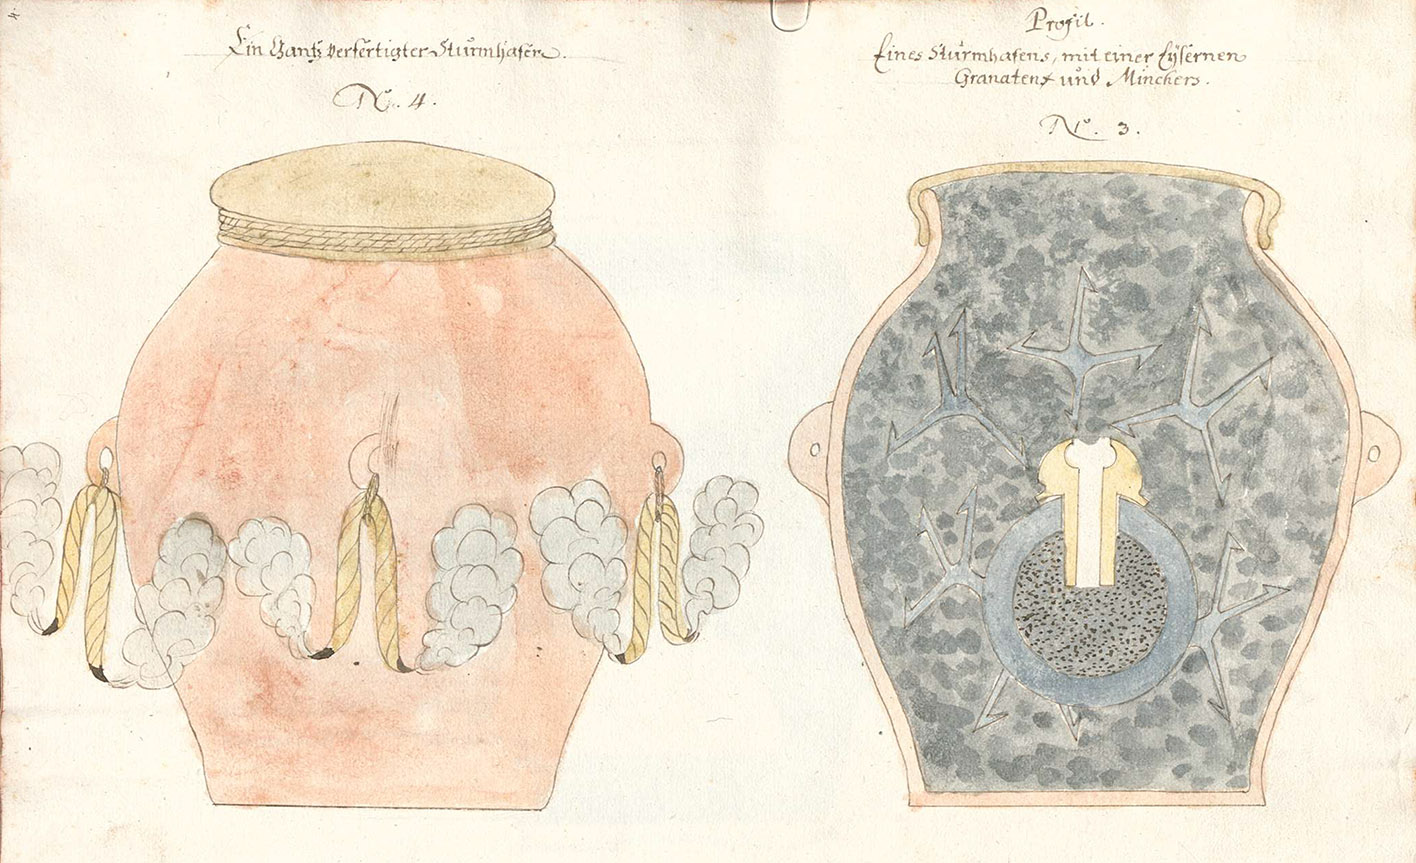 4.
Ein Gantz verfertigter Sturmhafen.
No. 4.
Profil.
Eines Sturmhafens, mit einer Eysernen
Granaten und Minckers.
No. 3.